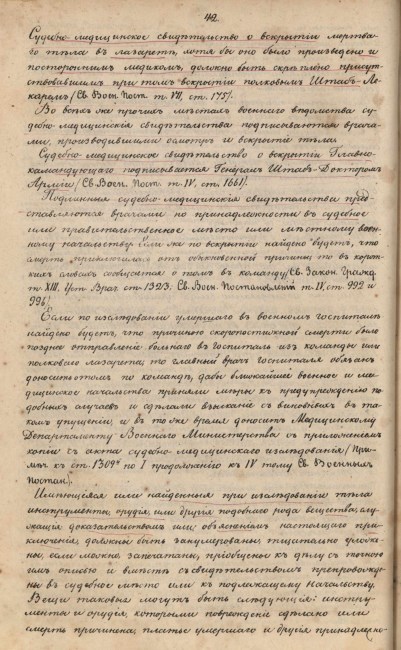 42.
Судебно-медицинское свидѣтельство о вскрытiи мертва-
го тѣла въ лазаретѣ, хотя бы оно было произведено и
постороннимъ медикомъ, должно быть скрѣплено присут-
ствовавшимъ при томъ вскрытiи полковымъ Штабъ-Ле-
каремъ /Св. Воен. Пост. т. VII, ст. 175/.
Во всѣхъ же прочихъ мѣстахъ военнаго вѣдомства су-
дебно-медицинскiя свидѣтельства подписываются врача-
ми, производившими осмотръ и вскрытiе тѣла.
Судебно-медицинское свидѣтельство о вскрытiи Главно-
командующаго подписывается Генералъ Штабъ-Докторомъ
Армiи /Св. Воен. Пост. т. IV, ст. 1661/.
Подлинныя судебно-медицинскiя свидѣтельства пред-
ставляются врачами по принадлежности въ судебное
или правительственное мѣсто или мѣстному воен-
ному начальству; если же по вскрытiи найдено будетъ, что
смерть приключилась отъ обыкновенной причины, то въ корот-
кихъ словахъ сообщается о томъ въ команду /Св. Закон. Гражд.
т. XIII, Уст. Врач. ст. 1323; Св. Воен. Постановленiй т. IV, ст. 992 и
996/.
Если по изслѣдованiи умершаго въ военномъ госпиталѣ
найдено будетъ, что причиною скоропостижной смерти было
позднее отправленiе больнаго въ госпиталь изъ команды или
полковаго лазарета, то главный врачъ госпиталя обязанъ
доносить о томъ по командѣ, дабы ближайшее военное и ме-
дицинское начальства приняли мѣры къ предупрежденiю по-
добныхъ случаевъ и сдѣлали взысканiе съ виновныхъ въ та-
комъ упущенiи, и въ то же время доноситъ Медицинскому
Департаменту Военнаго Министерства съ приложенiемъ
копiи съ акта судебно-медицинскаго изслѣдованiя /При-
мѣч. къ ст. 1309 по I продолженiю къ IV тому Св. Военныхъ
Постан./.
Имѣющiяся или найденныя при изслѣдованiи тѣла
инструменты, орудiя, или другiя подобнаго рода вещества, слу-
жащiя доказательствомъ или объясненiемъ настоящаго при-
ключенiя, должны быть занумерованы, тщательно уложе-
ны, если можно, запечатаны, прiобщены къ дѣлу съ точною
имъ описью и вмѣстѣ съ свидѣтельствомъ препровожде-
ны въ судебное мѣсто или къ подлежащему начальству.
Вещи таковыя могутъ быть слѣдующiя: инстру-
менты и орудiя, которыми поврежденiе сдѣлано или
смерть причинена, платье умершаго и другiя принадлежно-